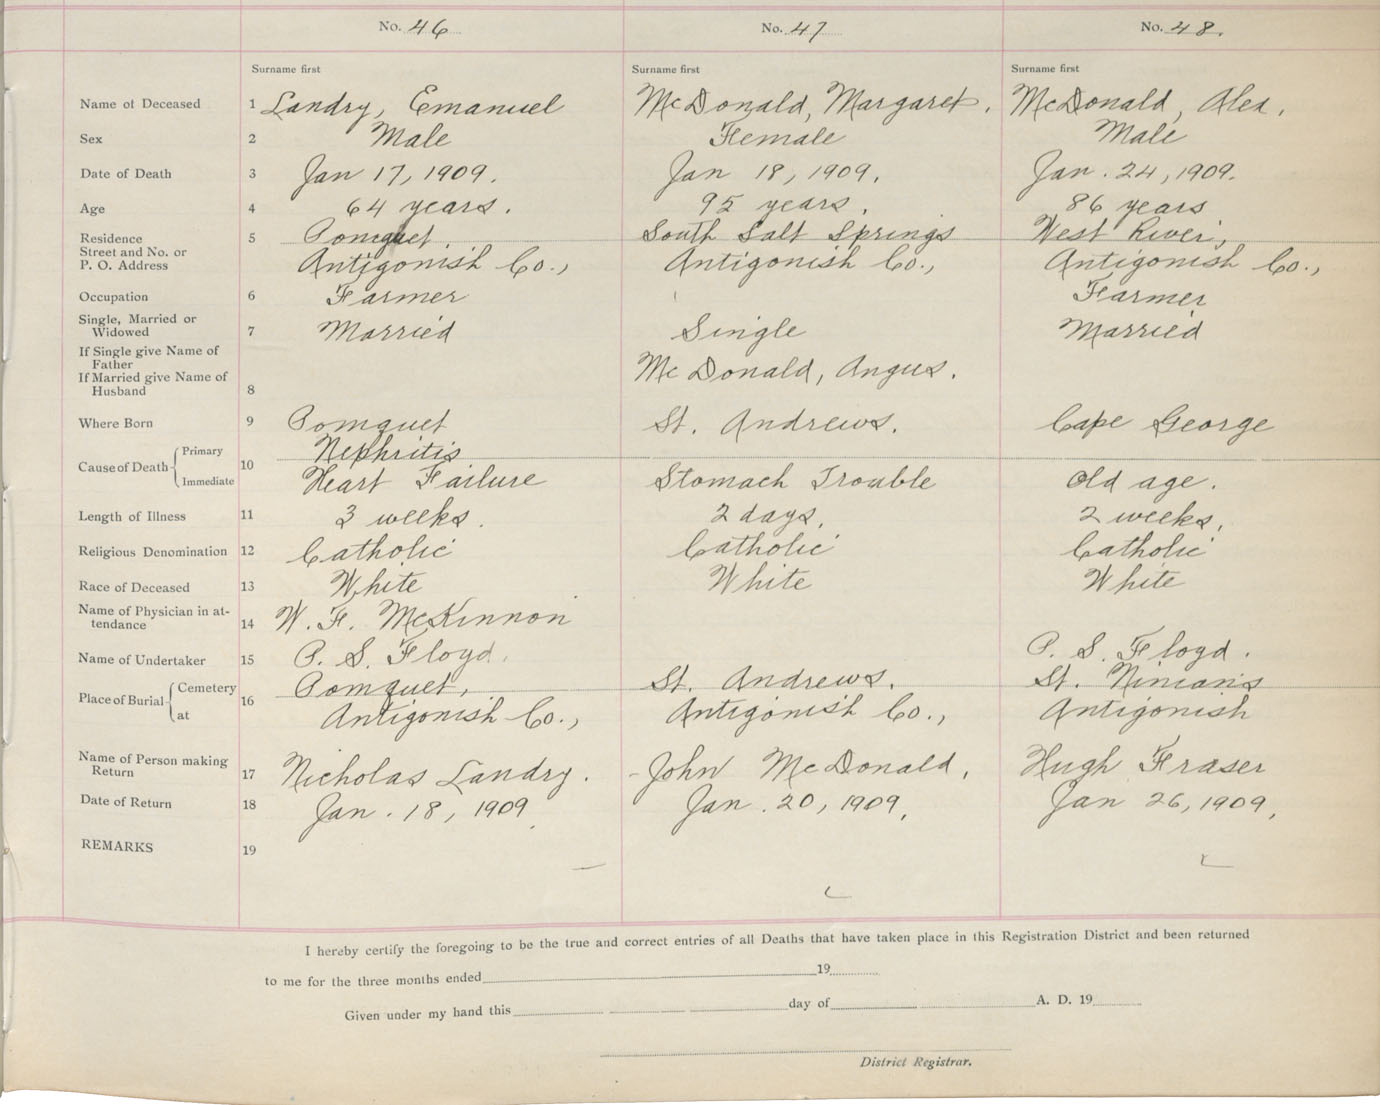 No. 46 No. 47 No. 48.
Surname first Surname first Surname first
Name of Deceased 1 Landry, Emanuel McDonald, Margaret. McDonald, Alex.
Sex 2 Male Female Male
Date of Death 3 Jan 17, 1909. Jan 18, 1909. Jan. 24, 1909.
Age 4 64 years. 95 years. 86 years
Residence 5 Pomquet, South Salt Springs West River,
Street and No. or
P. O. Address Antigonish Co., Antigonish Co., Antigonish Co.,
Occupation 6 Farmer Farmer
Single, Married or
Widowed 7 Married Single Married
If Single give Name of
Father
If Married give Name of McDonald, Angus.
Husband 8
Where Born 9 Pomquet St. Andrews. Cape George
Cause of Death Primary 10 Nephritis
Immediate Heart Failure Stomach Trouble Old age.
Length of Illness 11 3 weeks. 2 days, 2 weeks,
Religious Denomination 12 Catholic Catholic Catholic
Race of Deceased 13 White White White
Name of Physician in at-
tendance 14 W. F. McKinnon
Name of Undertaker 15 P. S. Floyd. P. S. Floyd.
Place of Burial Cemetery 16 Pomquet, St. Andrews. St. Ninian's
at Antigonish Co., Antigonish Co., Antigonish
Name of Person making
Return 17 Nicholas Landry. John McDonald, Hugh Fraser
Date of Return 18 Jan. 18, 1909 Jan. 20, 1909, Jan 26, 1909,
REMARKS 19
I hereby certify the foregoing to be the true and correct entries of all Deaths that have taken place in this Registration District and been returned
to me for the three months ended 19
Given under my hand this day of A. D. 19
District Registrar.